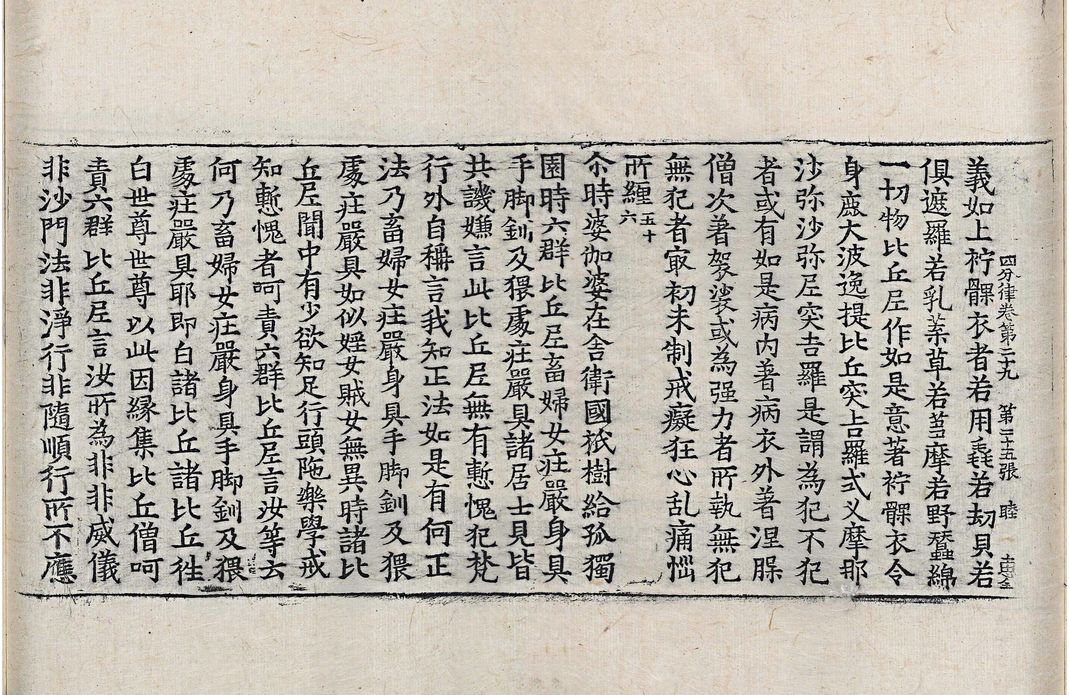 四分律卷第二十九 第二十五張 睦
義如上袸髁衣者若用毳若劫貝若
俱遮羅若乳葉草若芻摩若野蠶綿
一切物比丘尼作如是意著袸髁衣令
身麁大波逸提比丘突吉羅式叉摩那
沙弥沙弥尼突吉羅是謂為犯不犯
者或有如是病内著病衣外著涅脵
僧次著袈裟或為强力者所執無犯
無犯者㝡初未制戒癡狂心乱痛惱
所纏五十六
尒時婆伽婆在舍衛國祇樹給孤獨
園時六群比丘尼畜婦女庄嚴身具
手脚釧及猥處庄嚴具諸居士見皆
共譏嫌言此比丘尼無有慙愧犯梵
行外自稱言我知正法如是有何正
法乃畜婦女庄嚴身具手脚釧及猥
處庄嚴具如似婬女賊女無異時諸比
丘尼聞中有少欲知足行頭陁樂學戒
知慙愧者呵責六群比丘尼言汝等云
何乃畜婦女庄嚴身具手脚釧及猥
處庄嚴具耶即白諸比丘諸比丘徃
白世尊世尊以此因縁集比丘僧呵
責六群比丘尼言汝所為非非威儀
非沙門法非淨行非隨順行所不應